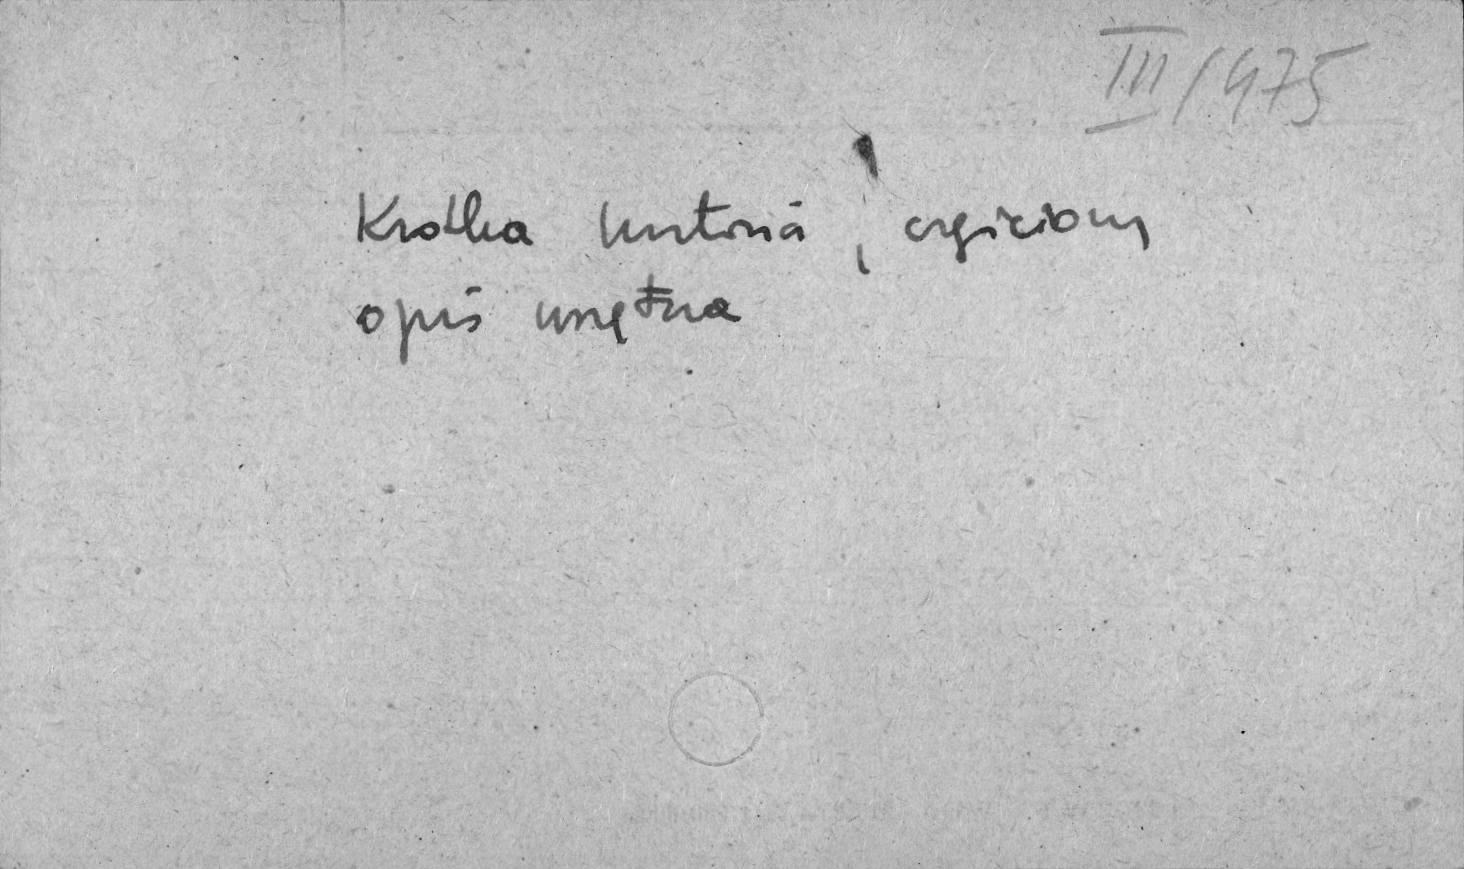 III/475
Krótka historia, częściowy
opis wnętrza